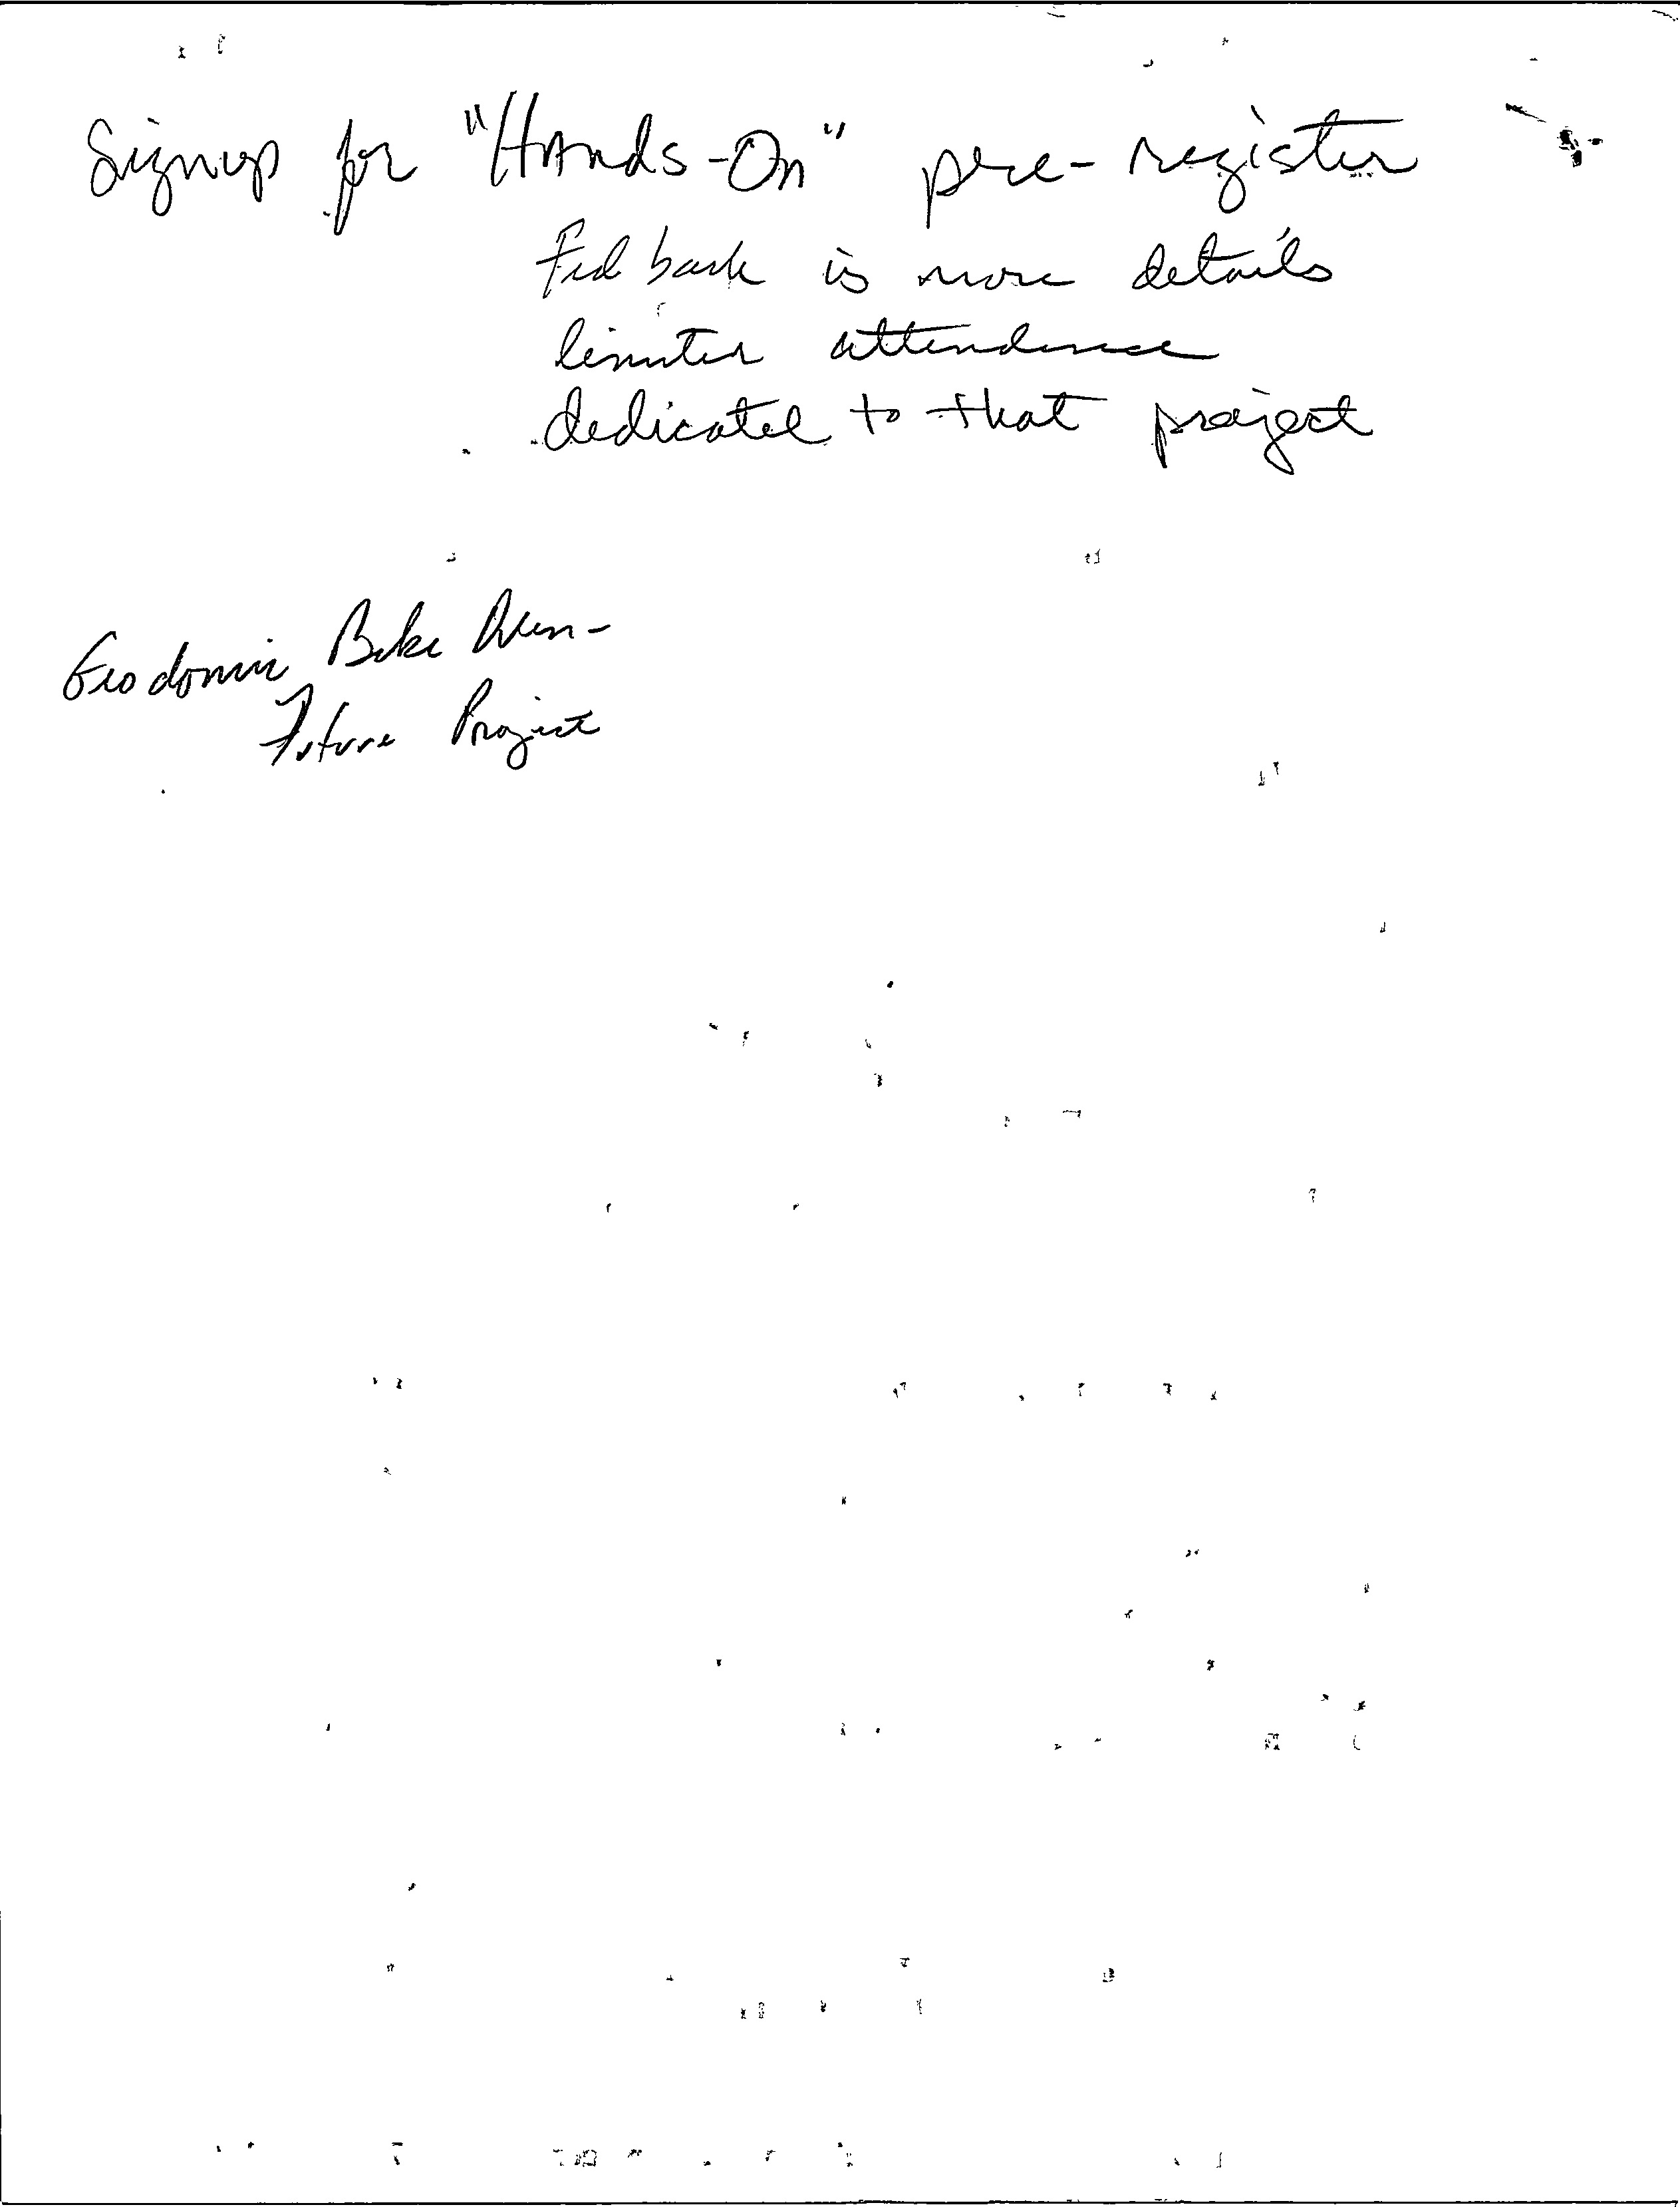 Signup for "Hands-On" pre-register
Feedback is more details
limited attendance
dedicated to that project
Bike
Future Project